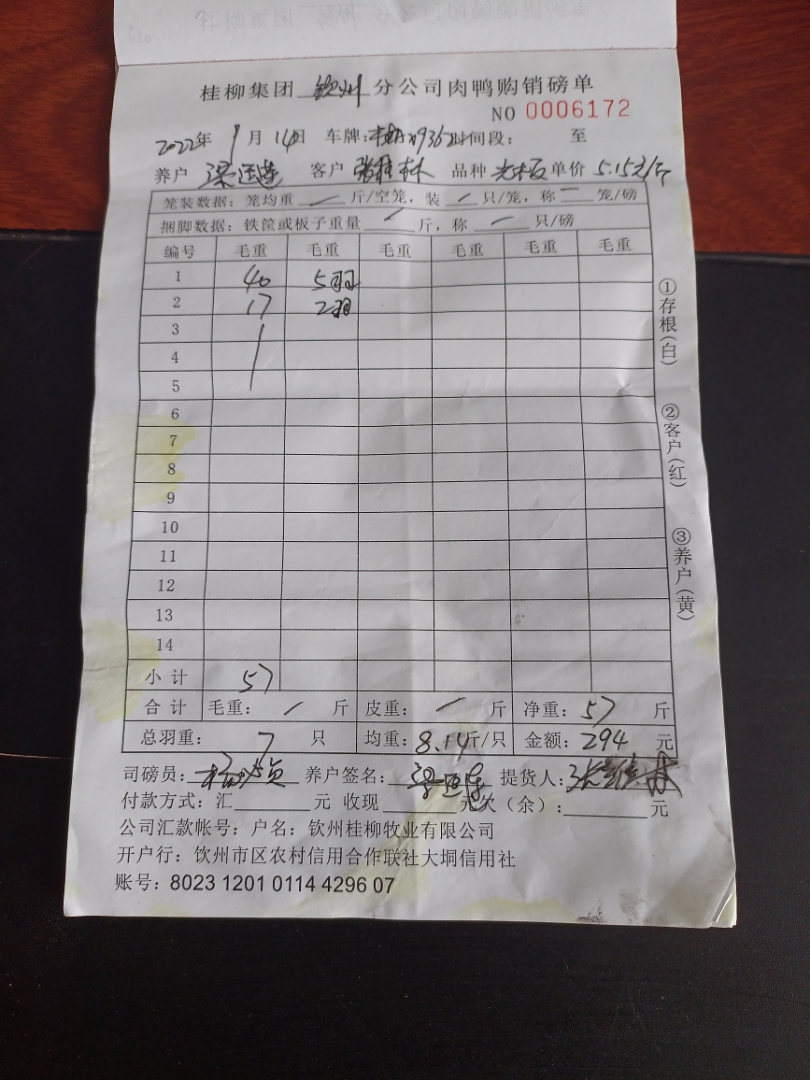 桂柳集团 钦州 分公司肉鸭购销磅单
NO 0006172
2022年 1月 14日 车牌: 时间段: 至
养户 客户 张桂林 品种 单价 5.15元/斤
笼装数据: 笼均重 / 斤/空笼, 装 / 只/笼, 称 一 笼/磅
捆脚数据: 铁筐或板子重量 / 斤, 称 一 只/磅
编号 毛重 毛重 毛重 毛重 毛重 毛重
1 40 5羽
2 17 2羽
3
4
5
6
7
8
9
10
11
12
13
14
小 计 57
合 计 毛重: / 斤 皮重: / 斤 净重: 57 斤
总羽重: 7 只 均重: 8.14斤/只 金额: 294 元
司磅员: 养户签名: 提货人: 张桂林
付款方式: 汇 元 收现 元欠(余): 元
公司汇款帐号: 户名: 钦州桂柳牧业有限公司
开户行: 钦州市区农村信用合作联社大垌信用社
账号: 8023 1201 0114 4296 07
①存根(白)
②客户(红)
③养户(黄)